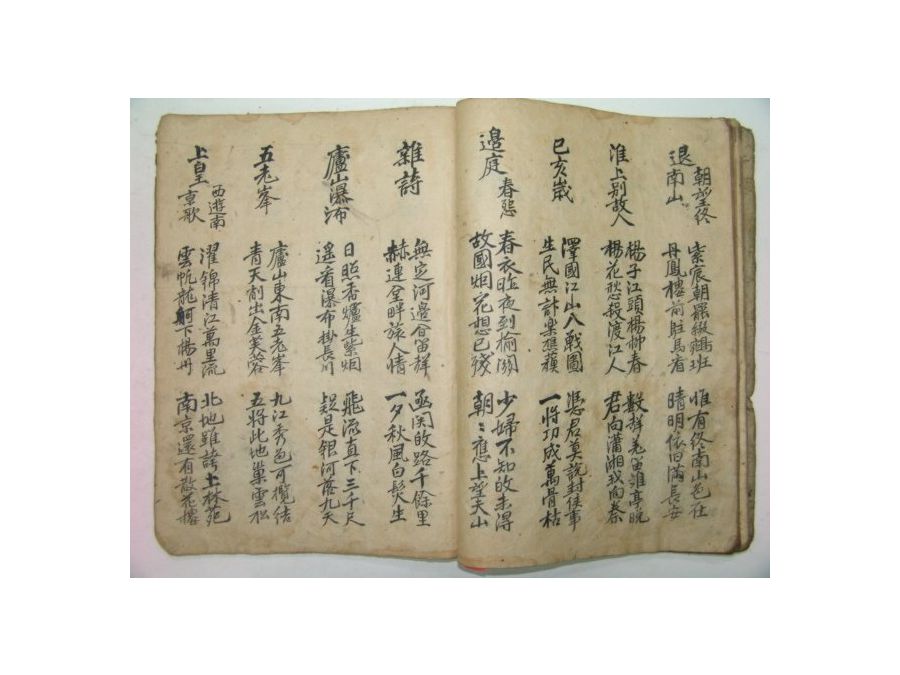 朝望終
退南山
紫宸朝罷綴鵷班
丹鳳樓前駐馬看
惟有終南山色在
晴明依旧滿長安
淮上別故人
楊子江頭楊柳春
楊花愁殺渡江人
數声羌笛淮亭晚
君向瀟湘我向秦
己亥歲
澤國江山入戰圖
生民無計樂樵蘓
憑君莫說封侯事
一將功成萬骨枯
邊庭春怨
春衣昨夜到榆關
故國烟花想已殘
少婦不知故未得
朝〻應上望夫山
雜詩
無定河邊角笛声
赫連臺畔旅人情
凾関故路千餘里
一夕秋風白髮生
廬山瀑布
日照香爐生紫烟
遥看瀑布掛長川
飛流直下三千尺
疑是銀河落九天
五老峯
廬山東南五老峯
青天削出金芙蓉
九江秀色可攬結
吾將此地巢雲松
上皇西遊南京歌
濯錦清江萬里流
雲帆龍舸下楊州
北地雖誇上林苑
南京還有散花樓